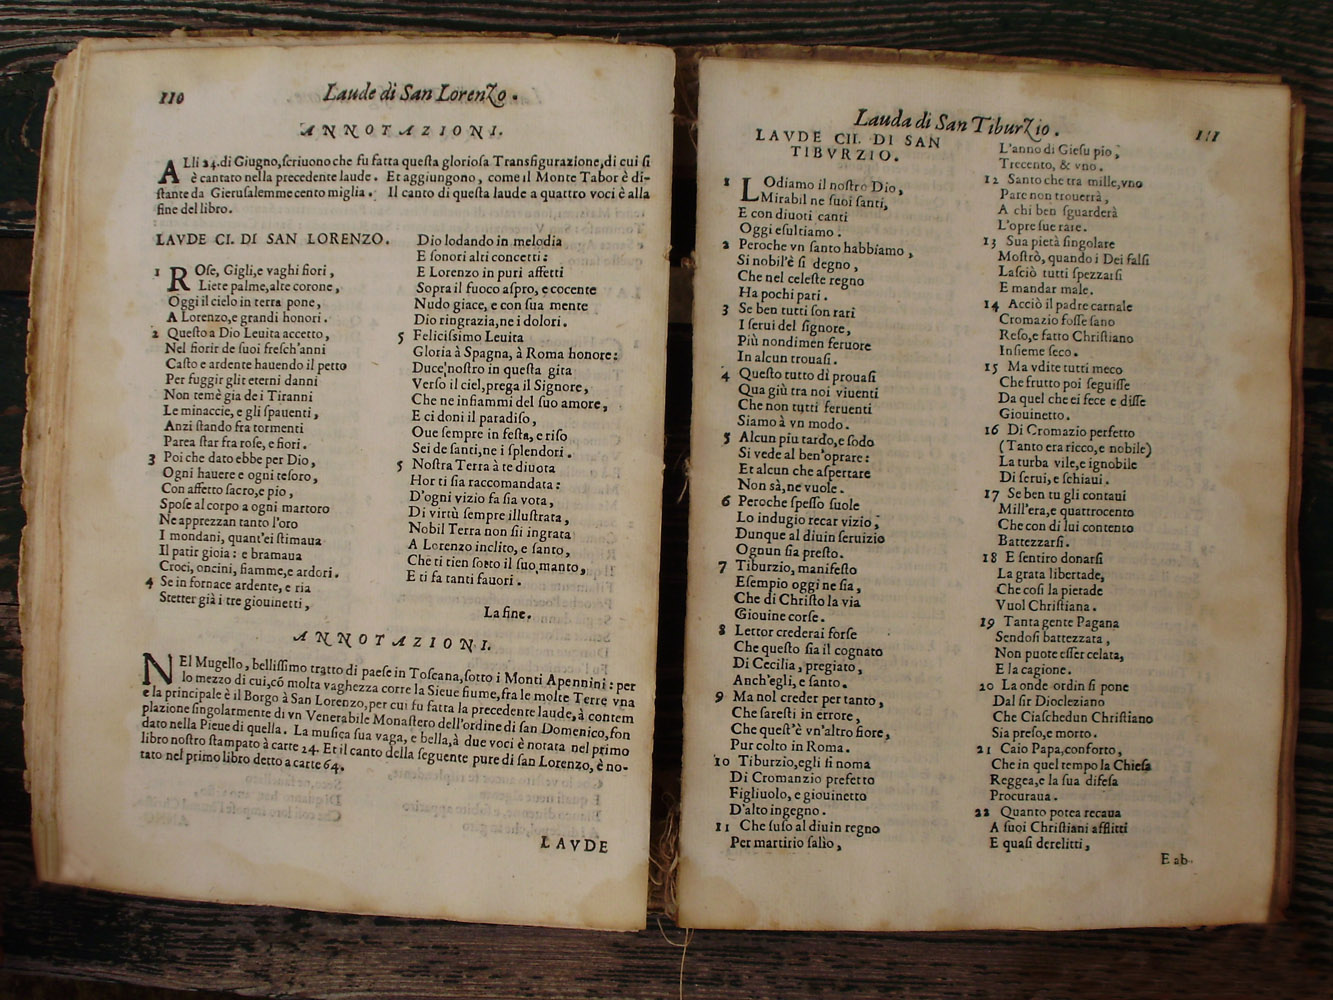 110
Laude di San Lorenzo.
ANNOTAZIONI.
ALli 24. di Giugno, ſcriuono che fu fatta queſta glorioſa Transfigurazione, di cui ſi
è cantato nella precedente laude. Et aggiungono, come il Monte Tabor è di-
ſtante da Gieruſalemme cento miglia. Il canto di queſta laude a quattro voci è alla
fine del libro.
LAVDE CI. DI SAN LORENZO.
1 ROſe, Gigli, e vaghi fiori,
Liete palme, alte corone,
Oggi il cielo in terra pone,
A Lorenzo, e grandi honori.
2 Queſto a Dio Leuita accetto,
Nel fiorir de ſuoi freſch'anni
Caſto e ardente hauendo il petto
Per fuggir gli eterni danni
Non temè gia de i Tiranni
Le minaccie, e gli ſpauenti,
Anzi ſtando fra tormenti
Parea ſtar fra roſe, e fiori.
3 Poi che dato ebbe per Dio,
Ogni hauere e ogni teſoro,
Con affetto ſacro, e pio,
Spoſe al corpo a ogni martoro
Ne apprezzan tanto l'oro
I mondani, quant'ei ſtimaua
Il patir gioia: e bramaua
Croci, oncini, fiamme, e ardori.
4 Se in fornace ardente, e ria
Stetter già i tre giouinetti,
Dio lodando in melodia
E ſonori alti concetti:
E Lorenzo in puri affetti
Sopra il fuoco aſpro, e cocente
Nudo giace, e con ſua mente
Dio ringrazia, ne i dolori.
5 Feliciſſimo Leuita
Gloria à Spagna, à Roma honore:
Duce noſtro in queſta gita
Verſo il ciel, prega il Signore,
Che ne infiammi del ſuo amore,
E ci doni il paradiſo,
Oue ſempre in feſta, e riſo
Sei de ſanti, ne i ſplendori.
5 Noſtra Terra à te diuota
Hor ti ſia raccomandata:
D'ogni vizio fa ſia vota,
Di virtù ſempre illuſtrata,
Nobil Terra non ſii ingrata
A Lorenzo inclito, e ſanto,
Che ti tien ſotto il ſuo manto,
E ti fa tanti fauori.
La fine.
ANNOTAZIONI.
NEl Mugello, belliſſimo tratto di paeſe in Toſcana, ſotto i Monti Apennini: per
lo mezzo di cui, cō molta vaghezza corre la Sieue fiume, fra le molte Terre vna
e la principale è il Borgo à San Lorenzo, per cui fu fatta la precedente laude, à contem
plazione ſingolarmente di vn Venerabile Monaſtero dell'ordine di ſan Domenico, fon
dato nella Pieue di quella. La muſica ſua vaga, e bella, à due voci è notata nel primo
libro noſtro ſtampato à carte 24. Et il canto della ſeguente pure di ſan Lorenzo, è no-
tato nel primo libro detto a carte 64.
LAVDE
Lauda di San Tiburzio.
111
LAVDE CII. DI SAN
TIBVRZIO.
1 LOdiamo il noſtro Dio,
Mirabil ne ſuoi ſanti,
E con diuoti canti
Oggi eſultiamo.
2 Peroche vn ſanto habbiamo,
Si nobil'è ſi degno,
Che nel celeſte regno
Ha pochi pari.
3 Se ben tutti ſon rari
I ſerui del ſignore,
Più nondimen feruore
In alcun trouaſi.
4 Queſto tutto dì prouaſi
Qua giù tra noi viuenti
Che non tutti feruenti
Siamo à vn modo.
5 Alcun piu tardo, e ſodo
Si vede al ben'oprare:
Et alcun che aſpettare
Non sà, ne vuole.
6 Peroche ſpeſſo ſuole
Lo indugio recar vizio;
Dunque al diuin ſeruizio
Ognun ſia preſto.
7 Tiburzio, manifeſto
Eſempio oggi ne ſia,
Che di Chriſto la via
Giouine corſe.
8 Lettor crederai forſe
Che queſto ſia il cognato
Di Cecilia, pregiato,
Anch'egli, e ſanto.
9 Ma nol creder per tanto,
Che ſareſti in errore,
Che queſt'è vn'altro fiore,
Pur colto in Roma.
10 Tiburzio, egli ſi noma
Di Cromanzio prefetto
Figliuolo, e giouinetto
D'alto ingegno.
11 Che ſuſo al diuin regno
Per martirio ſalìo,
L'anno di Gieſu pio,
Trecento, & vno.
12 Santo che tra mille, vno
Pare non trouerrà,
A chi ben ſguarderà
L'opre ſue rare.
13 Sua pietà ſingolare
Moſtrò, quando i Dei falſi
Laſciò tutti ſpezzarſi
E mandar male.
14 Acciò il padre carnale
Cromazio foſſe ſano
Reſo, e fatto Chriſtiano
Inſieme ſeco.
15 Ma vdite tutti meco
Che frutto poi ſeguiſſe
Da quel che ei fece e diſſe
Giouinetto.
16 Di Cromazio perfetto
(Tanto era ricco, e nobile)
La turba vile, e ignobile
Di ſerui, e ſchiaui.
17 Se ben tu gli contaui
Mill'era, e quattrocento
Che con di lui contento
Battezzarſi.
18 E ſentiro donarſi
La grata libertade,
Che coſi la pietade
Vuol Chriſtiana.
19 Tanta gente Pagana
Sendoſi battezzata,
Non puote eſſer celata,
E la cagione.
20 La onde ordin ſi pone
Dal ſir Diocleziano
Che Ciaſchedun Chriſtiano
Sia preſo, e morto.
21 Caio Papa, conforto,
Che in quel tempo la Chieſa
Reggea, e la ſua difeſa
Procuraua.
22 Quanto potea recaua
A ſuoi Chriſtiani afflitti
E quaſi derelitti,
E ab-